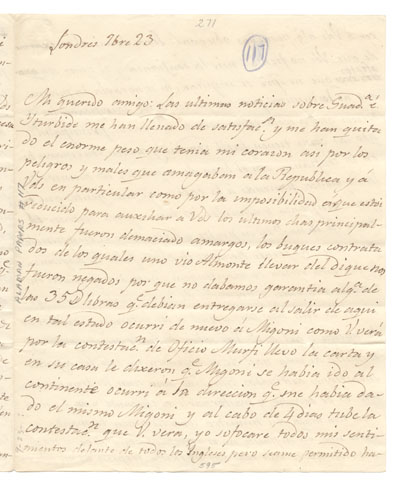 271
117
Londres 7bre 23
Mi querido amigo: Las ultimas noticias sobre Guad.ª é
Yturbide me han llenado de satisfac.n y me han quita
do el enorme peso que tenia mi corazon asi por los
peligros y males que amagaban a la Republica y á
Vds en particular como por la imposibilidad a que estoi
reducido para auxiliar a Vds los ultimos dias principal-
mente fueron demaciado amargos, los buques contrata
dos de los quales uno vio Almonte llevar del digue nos
fueron negados por que no dabamos garantia alg.a de
las 35D libras q.e debian entregarse al salir de aqui
en tal estado ocurri de nuevo a Migoni como V. verá
por la contestac.n de Oficio Murfi llevo la carta y
en su casa le dixeron q.e Migoni se habia ido al
continente ocurri á la direccion q.e me habia da-
do el mismo Migoni y al cabo de 4 dias tube la
contestac.n que V. vera, yo sofocare todos mis senti-
mientos delante de todos los Yngleses pero seame permitido ha-
595
ALAMAN PAPERS